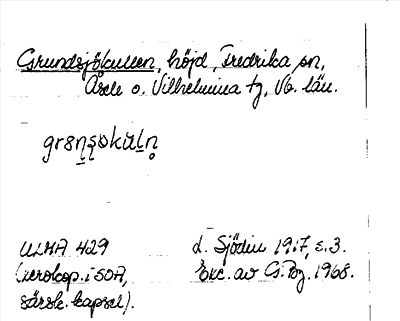 Grundsjökullen, höjd, Fredrika sn,
Åsele o. Vilhelmina tg, Vb. län.
grɞn̠s̨ɷkul̠n̥
ULMA 429 d. Sjödin 1917, s. 3.
(xerokop. i SOA, Exc. av G. Pbg. 1968.
särsk. kapsel).